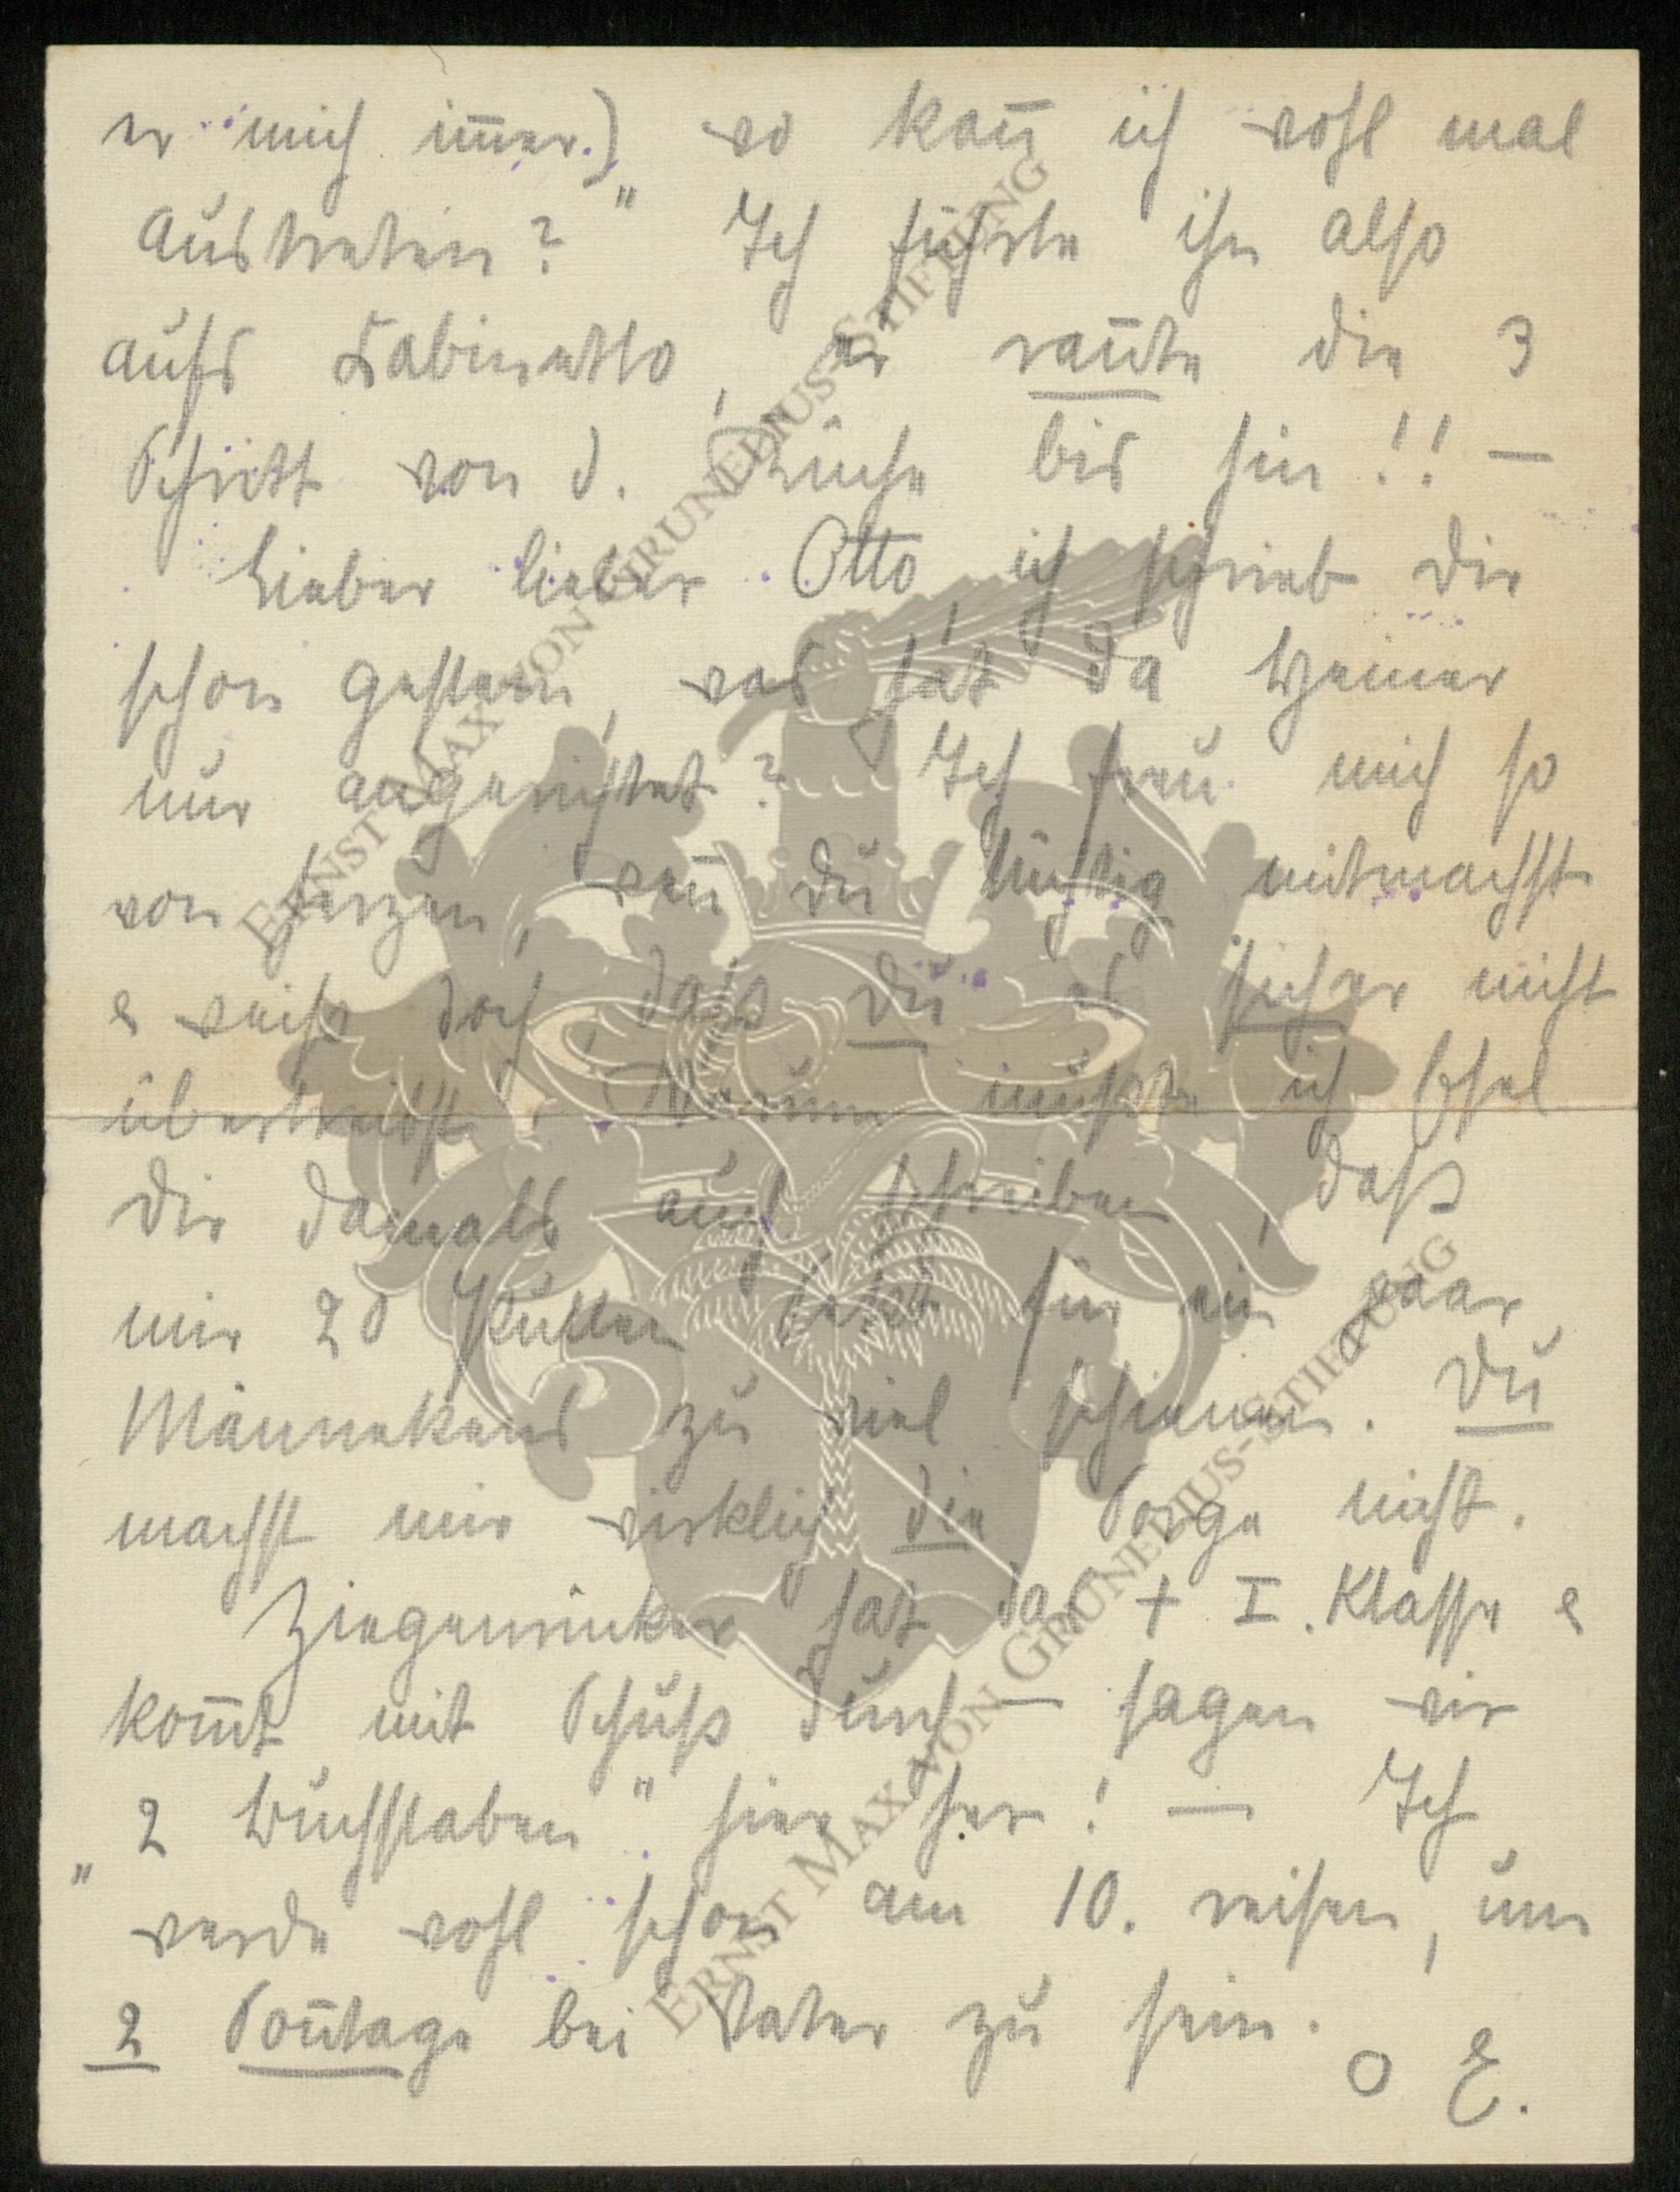 er mich im̄er.) wo kan̄ ich wohl mal
austreten?" Ich führte ihn also
aufs Kabinetto, er ran̄te die 3
Schritt von d. Küche bis hin!! —
Lieber lieber Otto, ich schrieb dir
schon gestern, was hat da Werner
nur angerichtet? Ich freu mich so
von Herzen, wen̄ du tüchtig mitmachst
& weiß doch, daß du es sicher nicht
übertreibst. Warum mußte ich Esel
dir damals auch schreiben, daß
mir 20 Pullen Sekt für ein paar
Männekens zu viel schienen. Du
machst mir wirklich die Sorge nicht.
Ziegenrücker hat das + I. Klasse &
kom̄t mit Schuß durch — sagen wir
„2 Buchstaben" hier her! — Ich
werde wohl schon am 10. reisen, um
2 Son̄tage bei Vater zu sein.
O E.
ERNST MAX VON GRUNELIUS-STIFTUNG
ERNST MAX VON GRUNELIUS-STIFTUNG